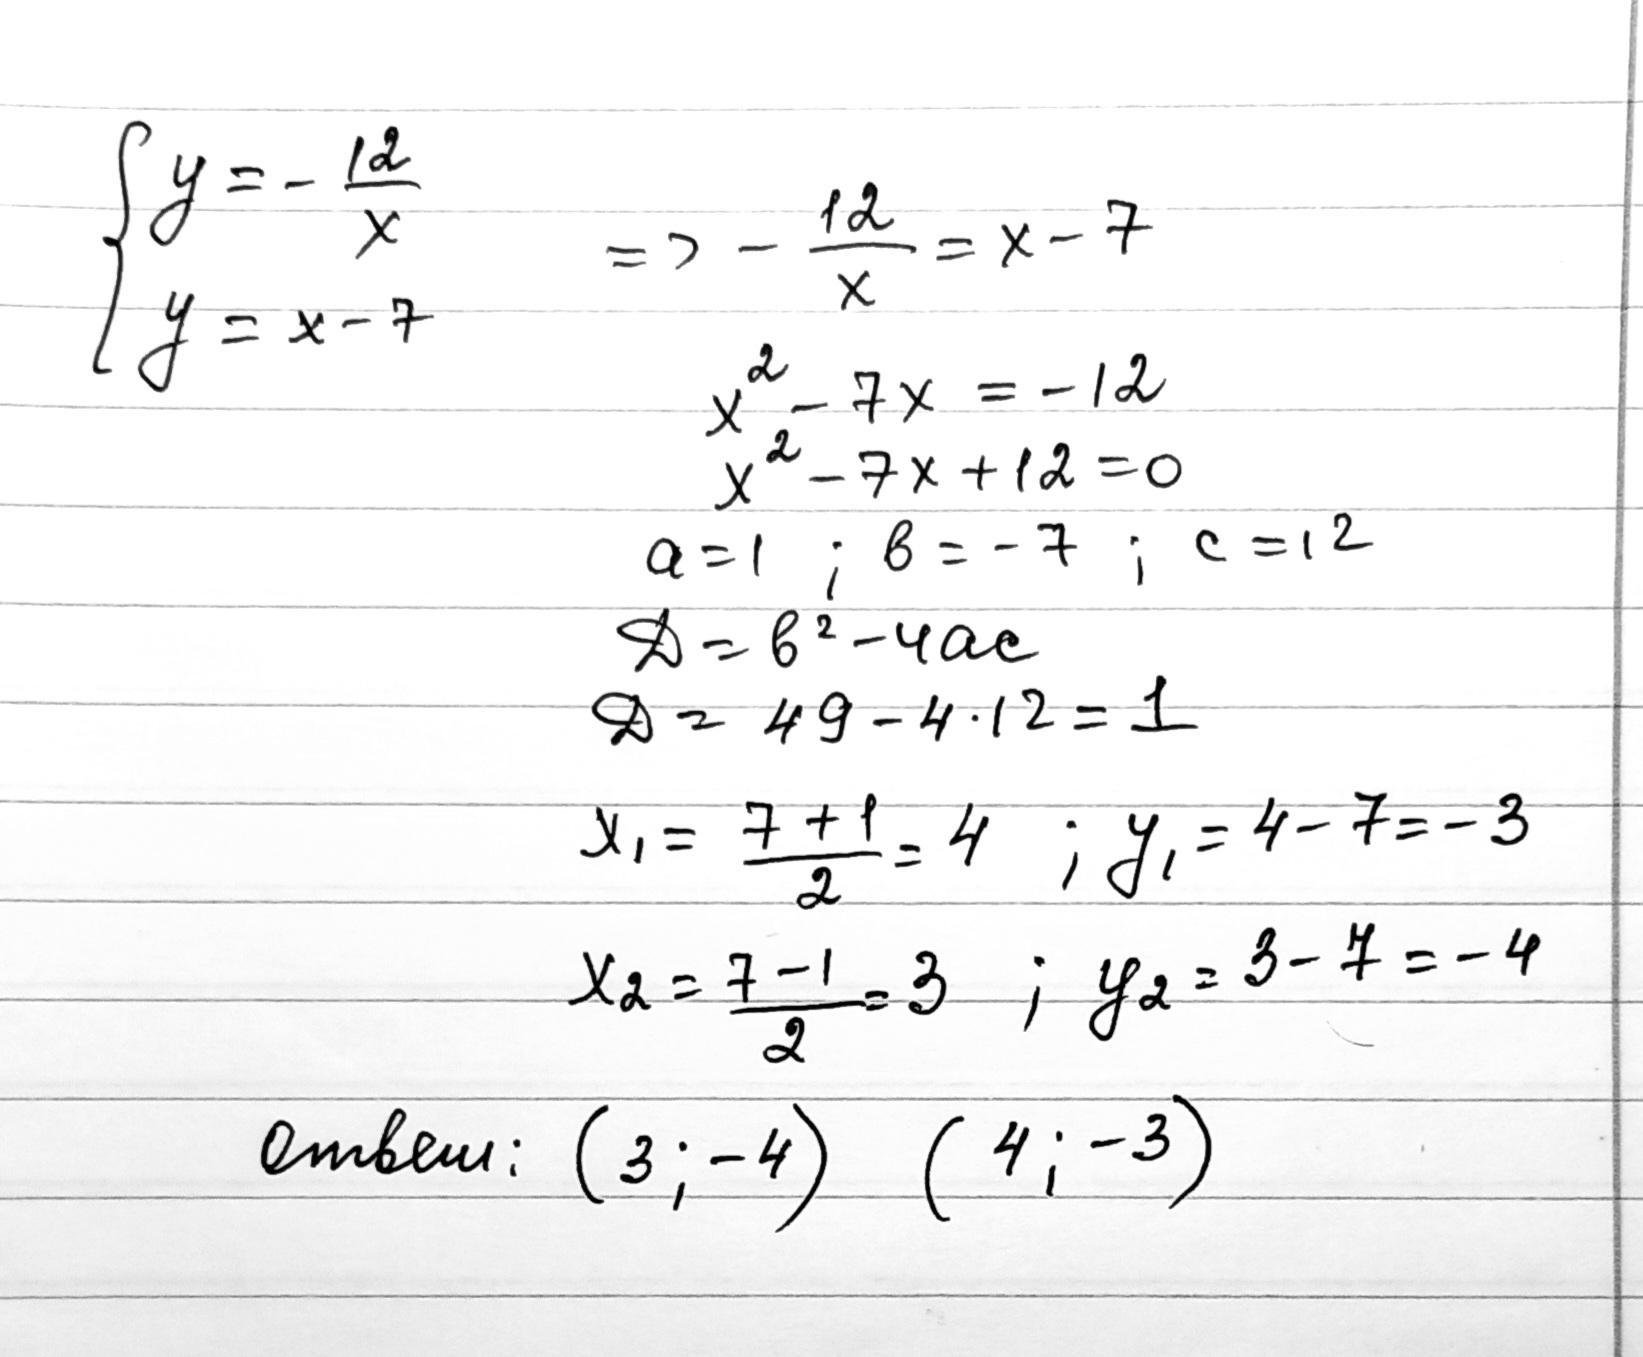 { y = - 12/x
y = x - 7
=> - 12/x = x - 7
x² - 7x = -12
x² - 7x + 12 = 0
a = 1 ; в = -7 ; c = 12
D = в² - 4ac
D = 49 - 4·12 = 1
x₁ = (7+1)/2 = 4 ; y₁ = 4 - 7 = -3
x₂ = (7-1)/2 = 3 ; y₂ = 3 - 7 = -4
ответ: (3; -4) (4; -3)